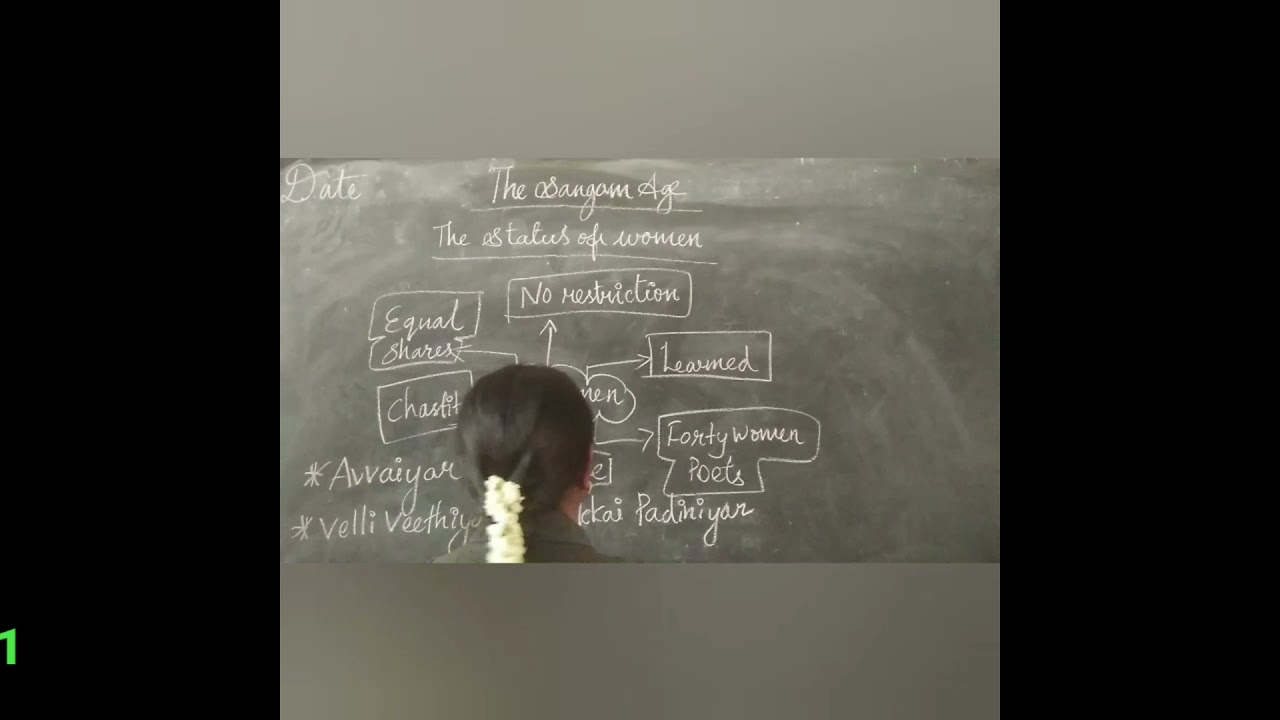 Date
The Sangam Age
The status of women
No restriction
Equal
shares
Learned
Forty women
Poets
* Avvaiyar
* Velli
Padiniyar
1